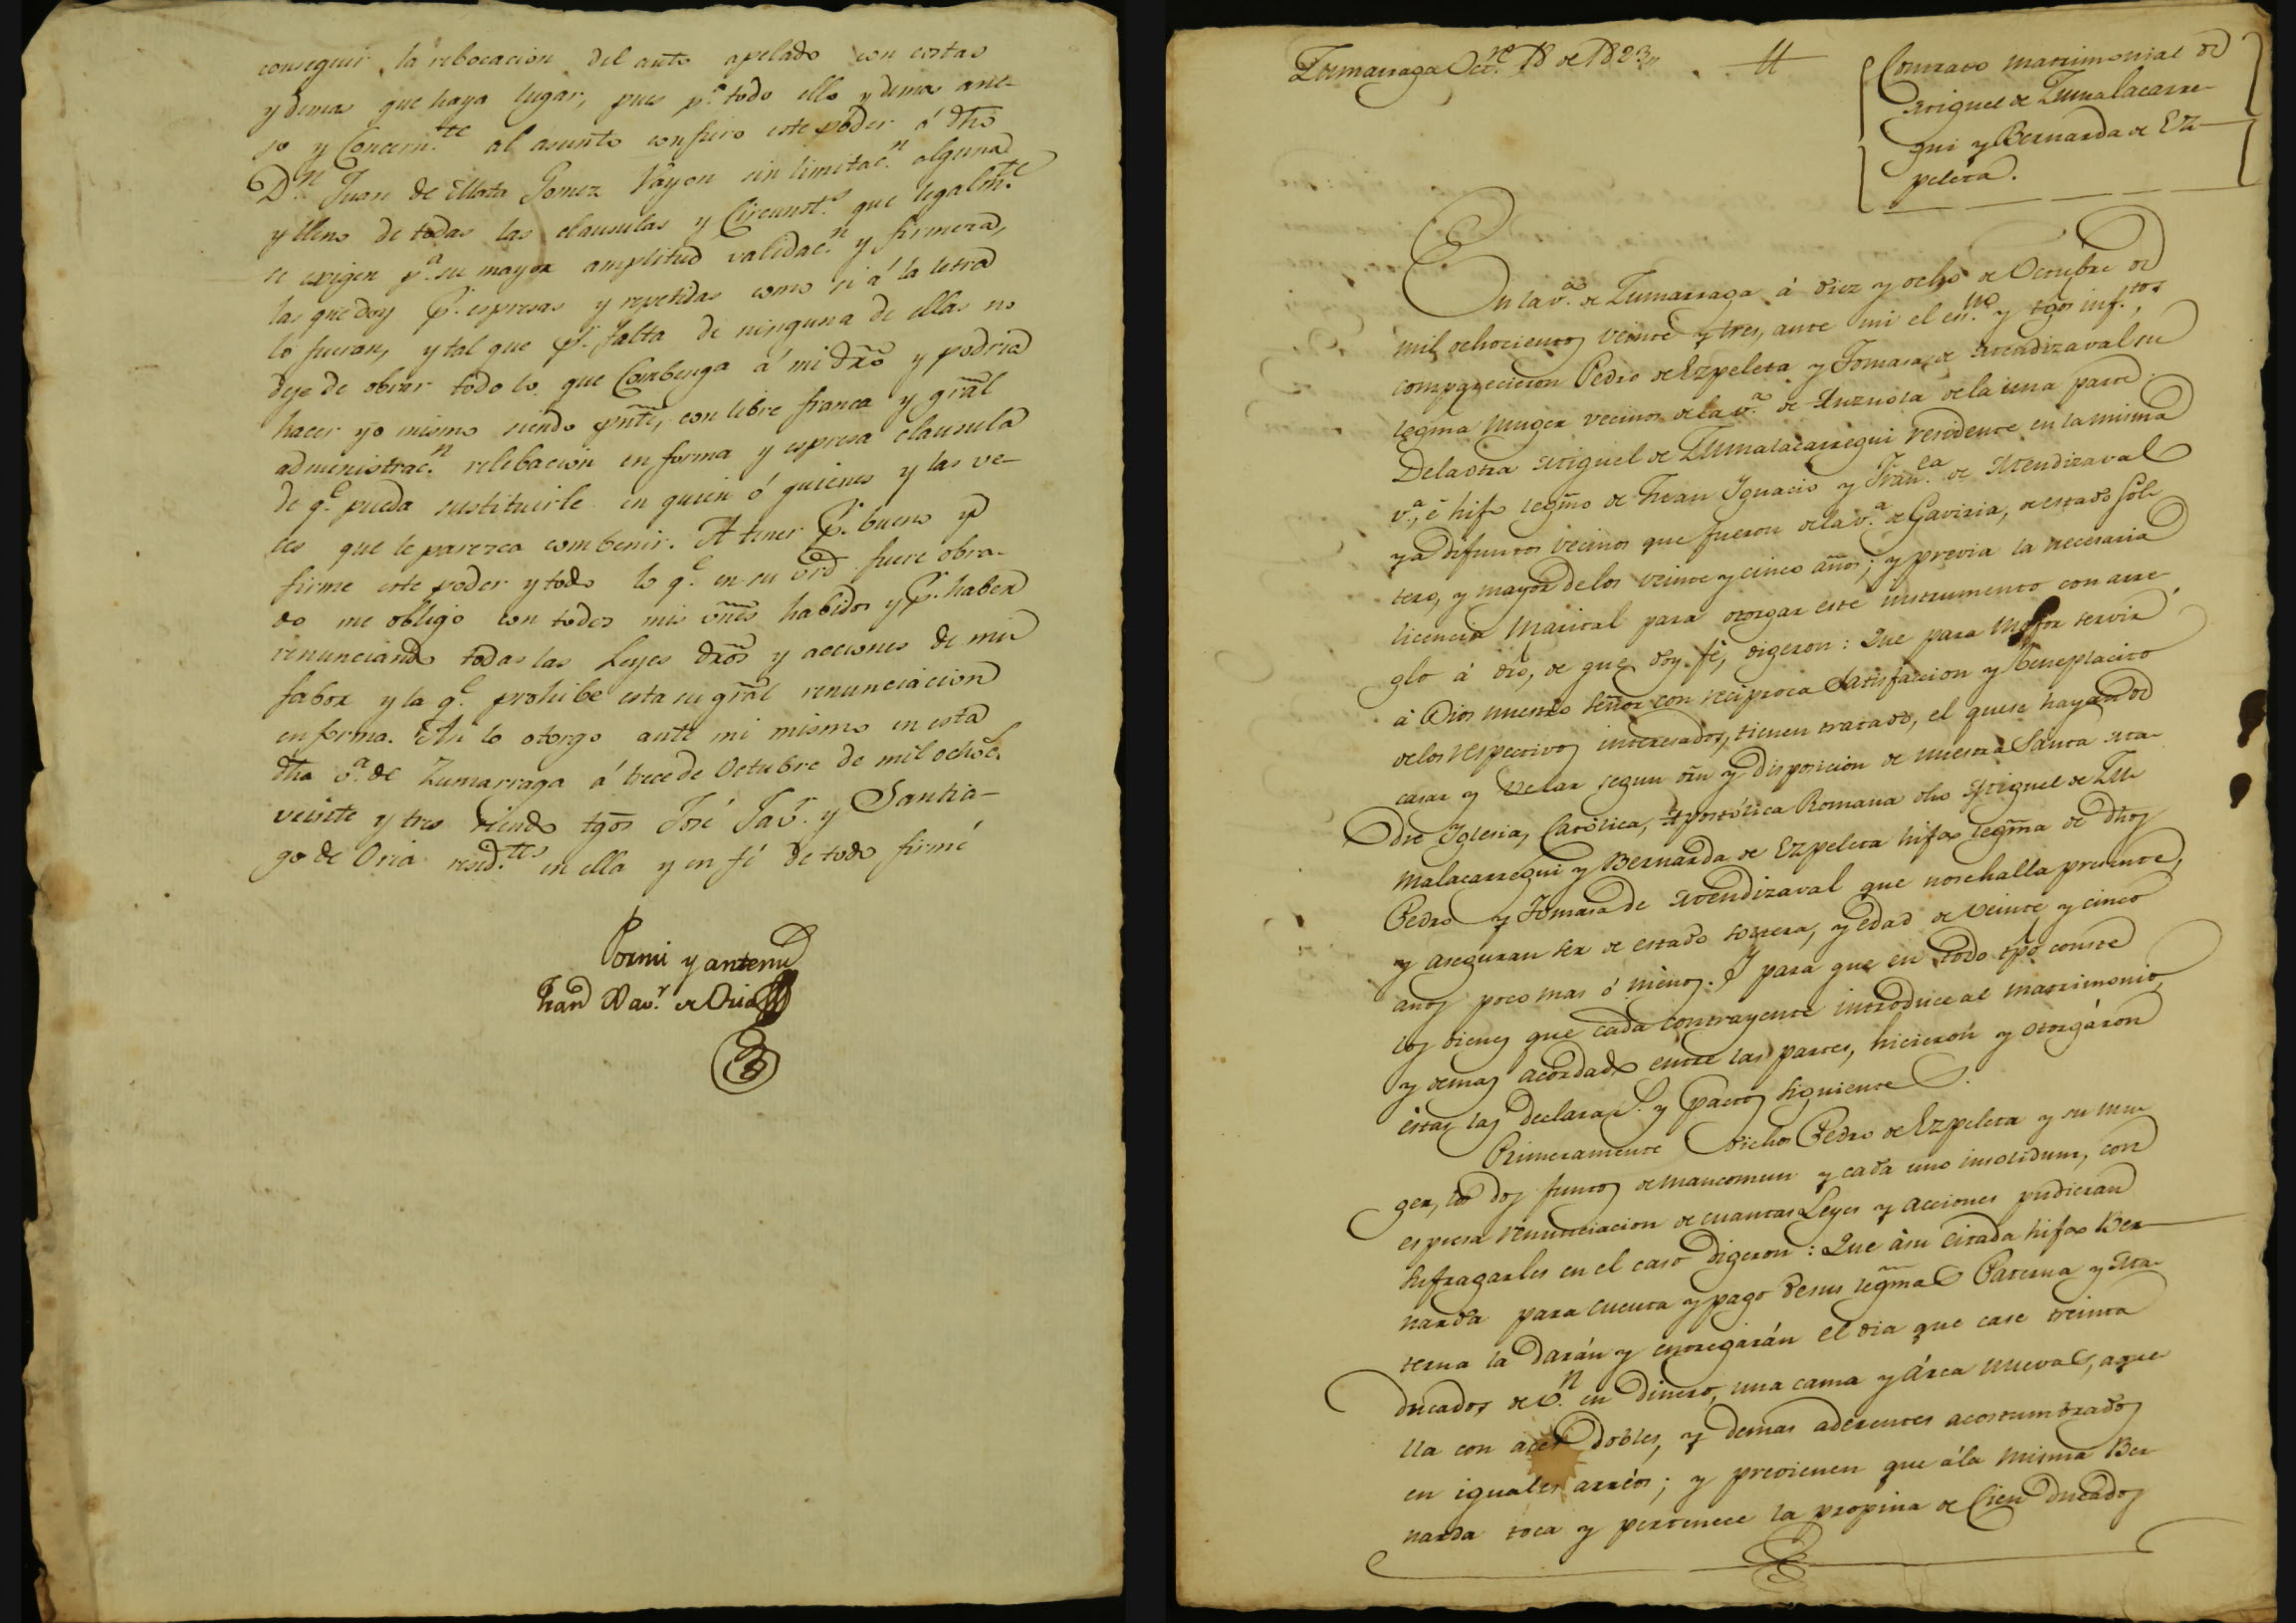 conseguir la rebocacion del auto apelado con costas
y demas que haya lugar, pues p.ª todo ello y demas ane-
jo y Concern.te al asunto confiero este poder á dho
D.n Juan de Mata Gomez Vayon sin limitac.n alguna
y lleno de todas las clausulas y Circunst.s que legalm.te
se exigen p.a su mayor amplitud validac.n y firmeza,
las que doy p.r espresas y repetidas como si á la letra
lo fueran, y tal que p.r falta de ninguna de ellas no
deje de obrar todo lo que Combenga á mi dro y podria
hacer yo mismo siendo pnte, con libre franca y gral
administrac.n relebacion en forma y espresa clausula
de q.e pueda sustituirle en quien ó quienes y las ve-
ces que le parezca combenir. A tener p.r bueno y
firme este poder y todo lo q.e en su vrd fuere obra-
do me obligo con todos mis vnes habidos y p.r haber
renunciando todas las Leyes dros y acciones de mi
fabor y la q.e prohibe esta su gral renunciacion
en forma. Asi lo otorgo ante mi mismo en esta
dha v.a de Zumarraga á trece de Octubre de mil ochoc.s
veinte y tres siendo tgos José Jav.r y Santia-
go de Oria resid.tes en ella y en fé de todo firmé
Por mi y ante mi
Juan Xav.r de Oria
Zumarraga Oct.re 18 de 1823,,
Contrato matrimonial de
Miguel de Zumalacarre-
gui y Bernarda de Ez-
peleta.
En la v.a de Zumarraga á diez y ocho de Octubre de
mil ochocientos veinte y tres, ante mi el es.no y tgos inf.tos,
comparecieron Pedro de Ezpeleta y Tomasa de Mendizaval su
legma muger vecinos de la v.a de Anzuola de la una parte
De la otra Miguel de Zumalacarregui residente en la misma
v.a, é hijo legmo de Juan Ignacio y Fran.ca de Mendizaval
ya difuntos vecinos que fueron de la v.a de Gaviria, de estado sol-
tero, y mayor de los veinte y cinco años; y previa la necesaria
licencia Marital para otorgar este instrumento con arre-
glo á dro, de que doy fé, digeron: Que para mejor servir
á Dios nuestro Señor con reciproca satisfaccion y beneplacito
de los respectivos interesados, tienen tratado, el que se hayan de
casar y velar segun orn y disposicion de nuestra Santa Ma-
dre Iglesia, Católica, Apostólica Romana dho Miguel de Zu-
malacarregui y Bernarda de Ezpeleta hija legma de dhos
Pedro y Tomasa de Mendizaval que no se halla presente,
y aseguran ser de estado soltera, y edad de veinte y cinco
años poco mas ó menos. Y para que en todo tpo conste
los bienes que cada contrayente introduce al matrimonio,
y demas acordado entre las partes, hicieron y otorgáron
estas las declarac.s y pactos siguientes.
Primeramente dichos Pedro de Ezpeleta y su mu-
ger, los dos juntos de mancomun y cada uno insolidum, con
espresa renunciacion de cuantas Leyes y acciones pudieran
sufragarles en el caso digeron: Que á su citada hija Ber-
narda para cuenta y pago de sus legmas Paterna y Ma-
terna la darán y entregarán el dia que case treinta
ducados de v.n en dinero, una cama y árca nuevas, aque-
lla con aces dobles, y demas aderentes acostumbrados
en iguales arréos; y previenen que á la misma Ber-
narda toca y pertenece la propina de Cien ducados